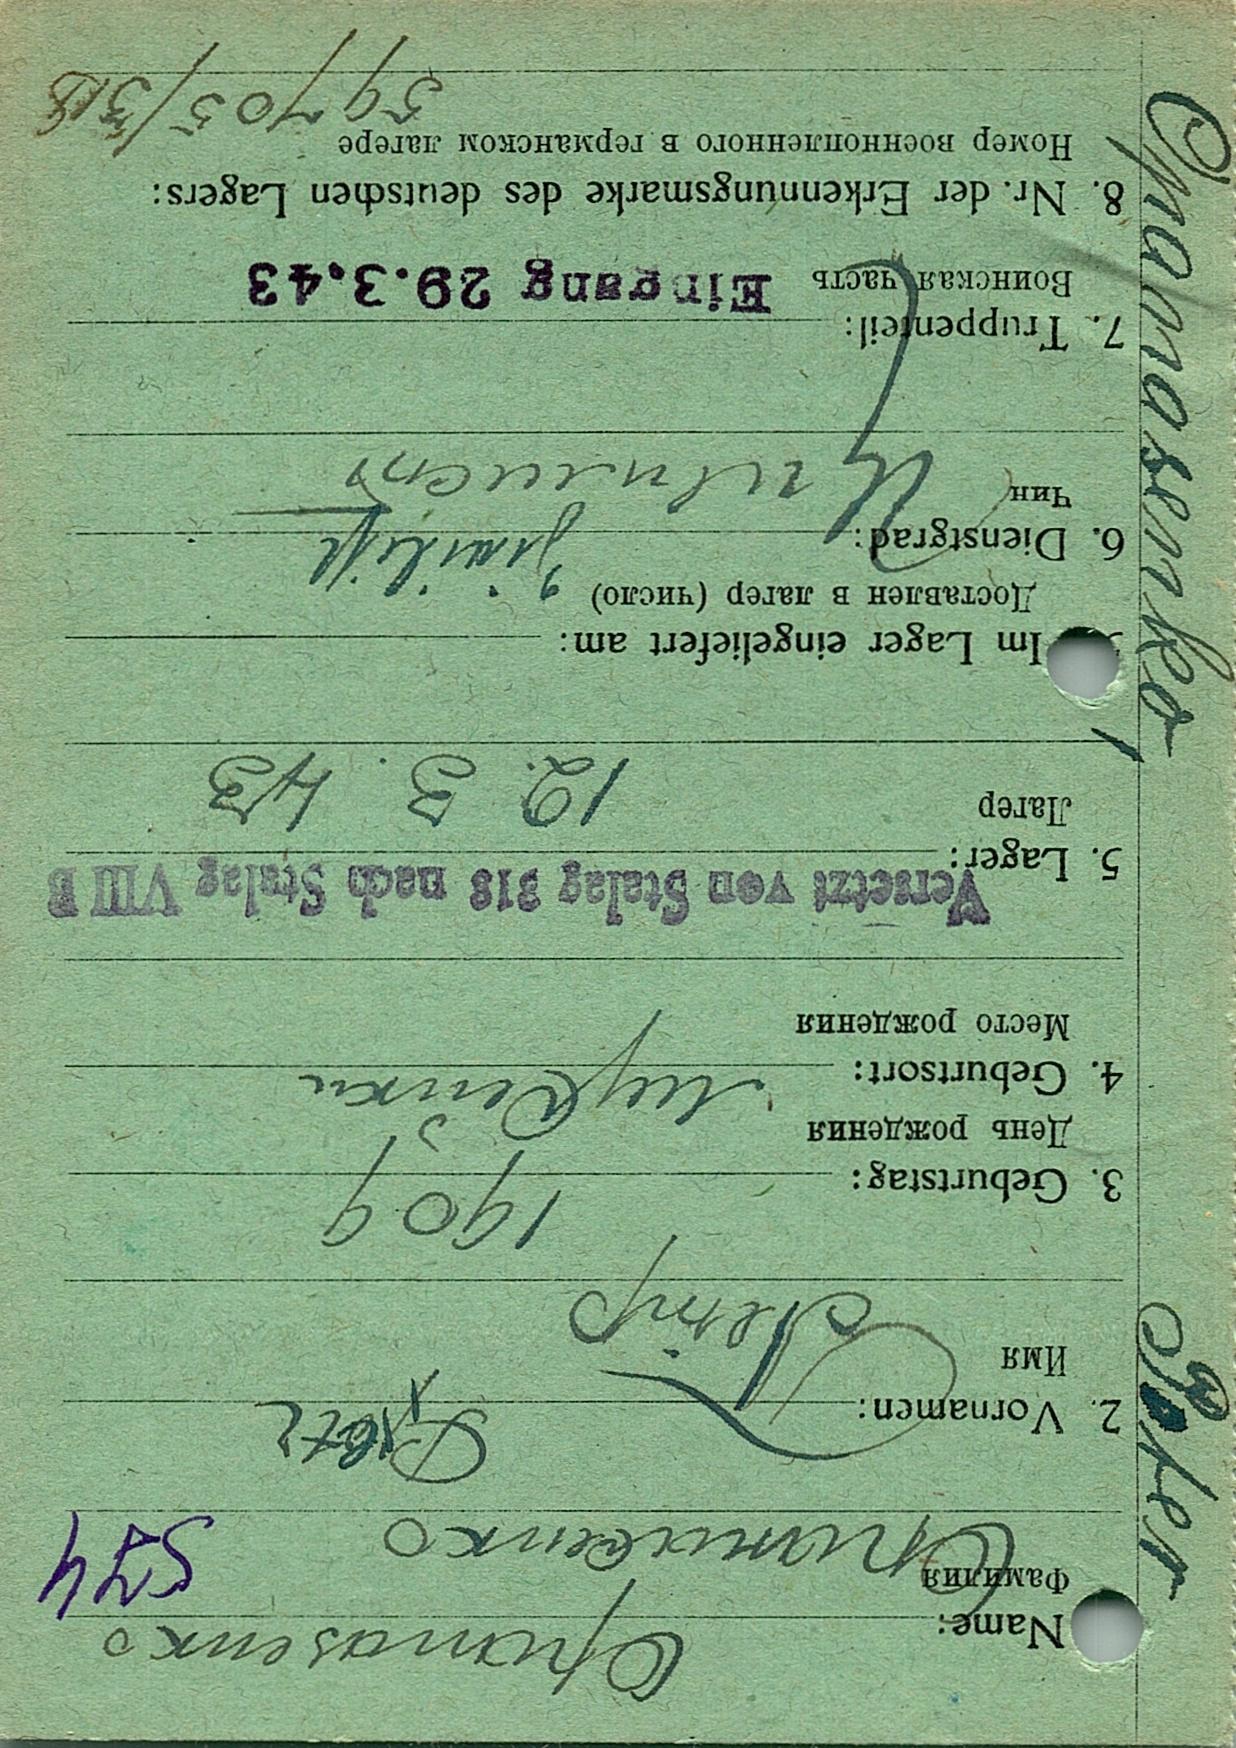 Name: Opanasenko
Фамилия Опанасенко 574
2. Vornamen: Peter
Имя Петр
3. Geburtstag: 1909
День рождения
4. Geburtsort:
Место рождения
Versetzt von Stalag 318 nach Stalag VIII B
5. Lager:
Лагер 12. 3. 43
Im Lager eingeliefert am:
Доставлен в лагер (число)
6. Dienstgrad: Zivilist
Чин Цивилист
7. Truppenteil:
Воинская часть Eingang 29.3.43
8. Nr. der Erkennungsmarke des deutschen Lagers:
Номер военнопленного в германском лагере
59705/318
Opanasenko Peter